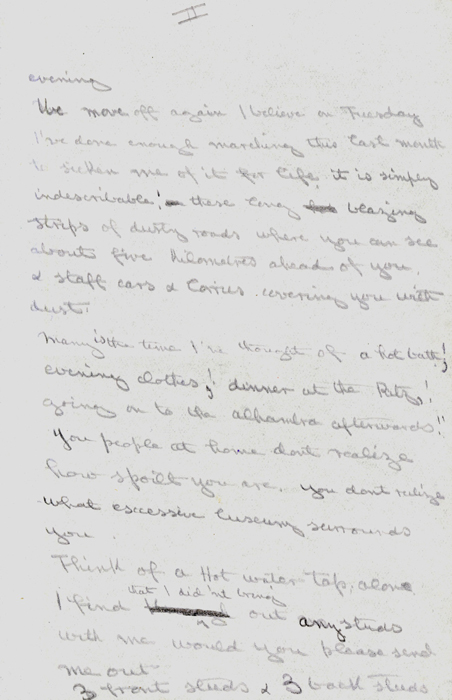 II
evening
We move off again I believe on Tuesday
I've done enough marching this last month
to sicken me of it for life, it is simply
indescribable! these long blazing
strips of dusty roads where you can see
about five kilometres ahead of you.
& staff cars & lorries. covering you with
dust.
Many is the time I've thought of a hot bath!
evening clothes! dinner at the Ritz,!
going on to the alhambra afterwards!!
You people at home don't realize
how spoilt you are. you don't realize
what excessive luxury surrounds
you.
Think of a Hot water tap, alone
that I did'nt bring
I find out any studs
with me would you please send
me out
3 front studs & 3 back studs